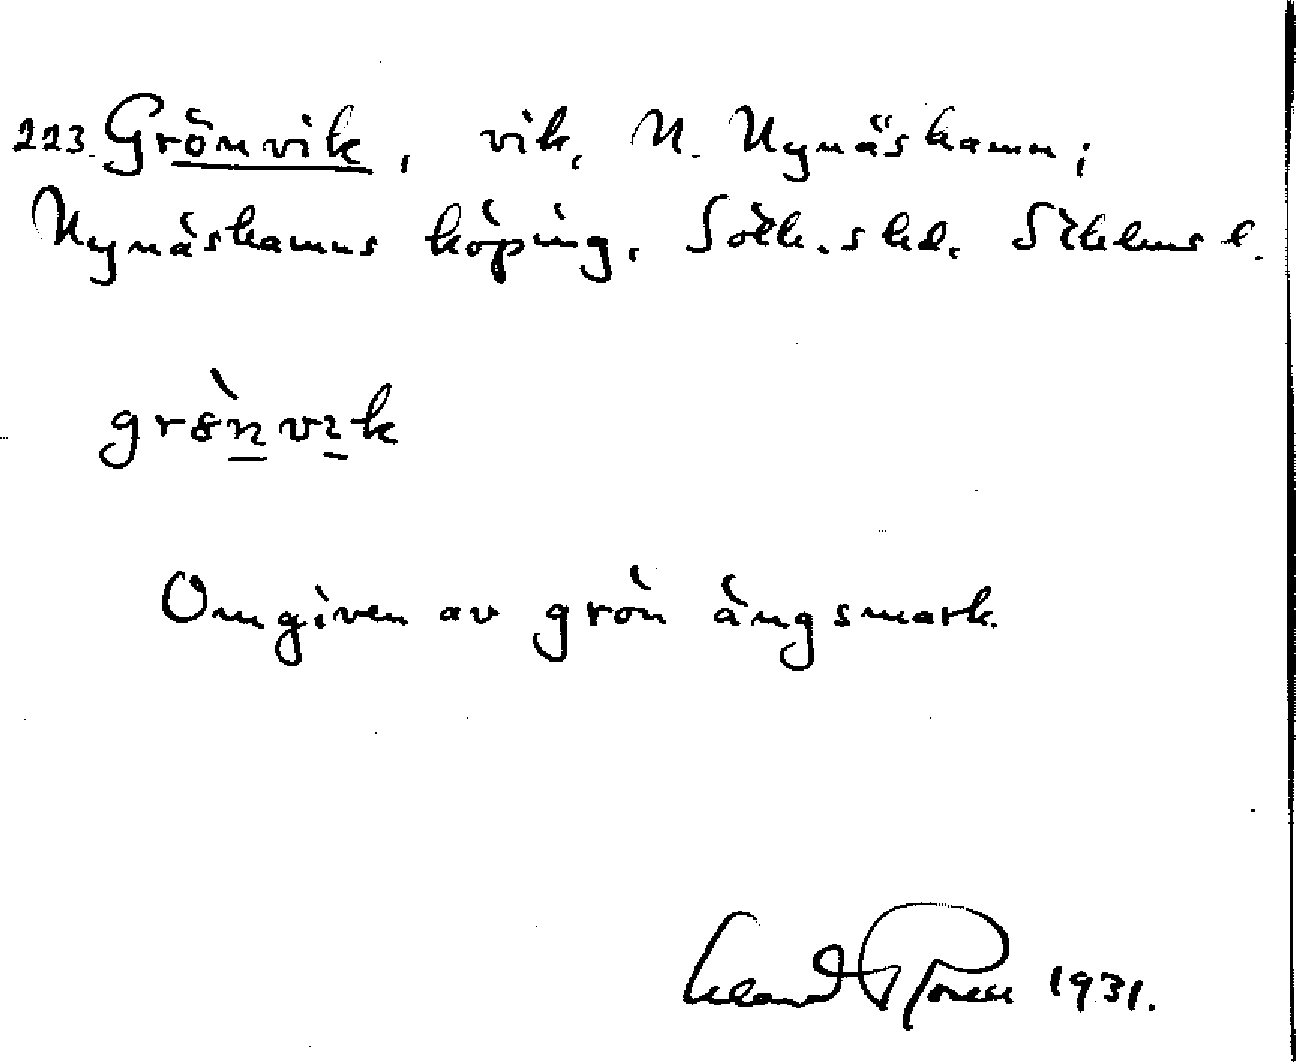 223. Grönvik, vik, N. Nynäshamn;
Nynäshamns köping. Sotk.s hd. Sthlms l.
grönvik
Omgiven av grön ängsmark.
1931.